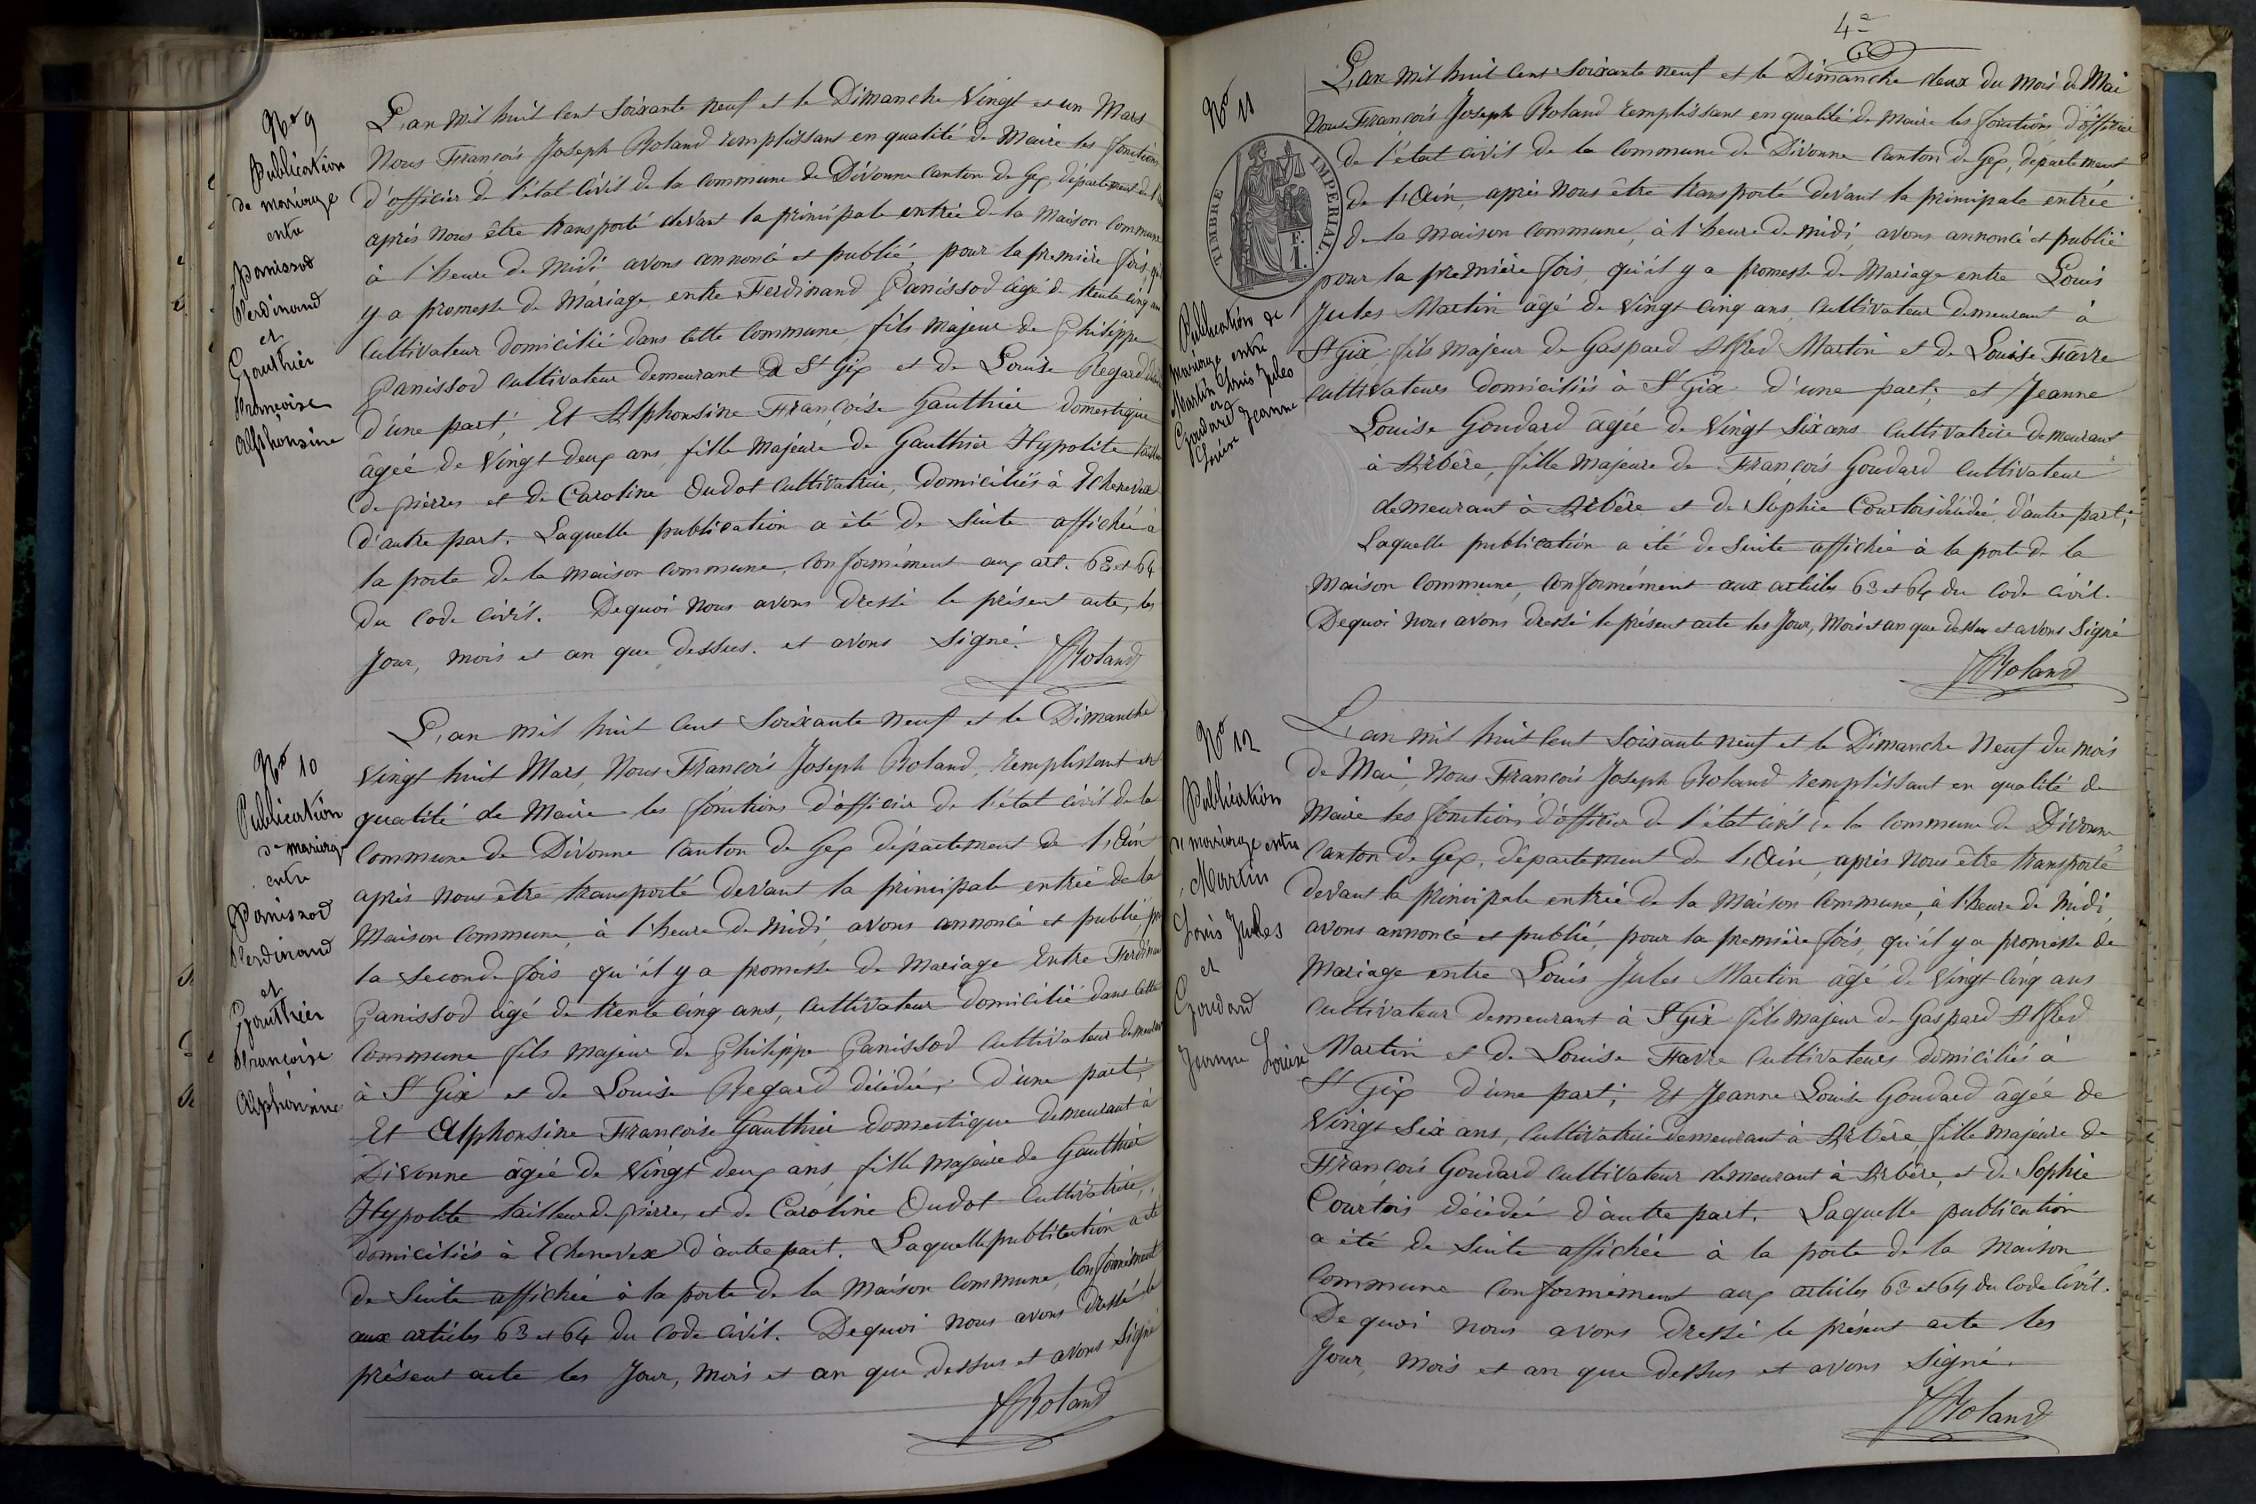 No 9
Publication
de mariage
entre
Panissod
Ferdinand
et
Gauthier
Françoise
Alphonsine
L'an mil huit cent soixante neuf et le Dimanche Vingt et un Mars
Nous François Joseph Roland remplissant en qualité de Maire les fonctions
d'officier de l'état Civil de la commune de Divonne canton de Gex, département de l'Ain
après nous être transporté devant la principale entrée de la maison commune
à l'heure de Midi avons annoncé et publié, pour la première fois, qu'il
y a promesse de Mariage, entre Ferdinand Panissod âgé de trente cinq ans
Cultivateur domicilié dans cette Commune, fils majeur de Philippe
Panissod cultivateur demeurant à St Gix et de Louise Regard
d'une part, Et Alphonsine Françoise Gauthier domestique
âgée de Vingt deux ans, fille majeure de Gauthier Hypolite tailleur
de pierres et de Caroline Oudot cultivatrice, Domiciliés à Echenevex
d'autre part. Laquelle publication a été de suite affichée à
la porte de la maison commune, conformément aux art. 63 et 64
du Code Civil. De quoi nous avons dressé le présent acte, les
Jour, mois et an que dessus. et avons signé.
JRoland
No 10
Publication
de mariage
entre
Panissod
Ferdinand
et
Gauthier
Françoise
Alphonsine
L'an mil huit cent Soixante neuf et le Dimanche
Vingt huit Mars, Nous François Joseph Roland, remplissant en
qualité de Maire les fonctions d'officier de l'état civil de la
Commune de Divonne Canton de Gex département de l'Ain
après nous être transporté devant la principale entrée de la
Maison Commune, à l'heure de midi, avons annoncé et publié, pr
la seconde fois qu'il y a promesse de Mariage Entre Ferdinand
Panissod âgé de trente cinq ans, cultivateur domicilié dans cette
Commune fils majeur de Philippe Panissod cultivateur demeurant
à St Gix et de Louise Regard décédée, d'une part,
Et Alphonsine Françoise Gauthier domestique demeurant à
Divonne âgée de Vingt deux ans, fille majeure de Gauthier
Hypolite tailleur de pierre, et de Caroline Oudot Cultivatrice,
domiciliés à Echenevex d'autre part. Laquelle publication a été
de Suite affichée à la porte de la Maison Commune, Conformément
aux articles 63 et 64 du Code Civil. De quoi nous avons dressé le
présent acte les Jour, mois et an que dessus et avons signé
JRoland
4e
No 11
TIMBRE IMPERIAL
1 F.
Publication de
Mariage entre
Martin Louis Jules
et
Goudard Jeanne
Louise
L'an mil huit cent soixante neuf et le Dimanche deux du mois de Mai
Nous François Joseph Roland remplissant en qualité de maire les fonctions d'officier
de l'état civil de la commune de Divonne Canton de Gex, département
de l'Ain, après nous être transporté devant la principale entrée
de la Maison Commune, à l'heure de midi, avons annoncé et publié
pour la première fois, qu'il y a promesse de Mariage entre Louis
Jules Martin âgé de Vingt cinq ans, cultivateur demeurant à
St Gix, fils majeur de Gaspard Alfred Martin et de Louise Favre
cultivateurs domiciliés à St Gix d'une part; et Jeanne
Louise Goudard âgée de Vingt Six ans cultivatrice demeurant
à Arbère, fille majeure de François Goudard cultivateur
demeurant à Arbère et de Sophie Courtois décédée, d'autre part;
Laquelle publication a été de suite affichée à la porte de la
Maison Commune, conformément aux articles 63 et 64 du Code Civil.
De quoi nous avons dressé le présent acte les Jour, Mois et an que dessus et avons Signé
JRoland
No 12
Publication
de mariage entre
Martin
Louis Jules
et
Goudard
Jeanne Louise
L'an mil huit cent soixante neuf et le Dimanche Neuf du mois
de Mai, Nous François Joseph Roland remplissant en qualité de
Maire les fonctions d'officier de l'état civil de la Commune de Divonne
Canton de Gex, département de l'Ain, après nous être transporté
devant la principale entrée de la Maison Commune, à l'heure de Midi,
avons annoncé et publié, pour la première fois, qu'il y a promesse de
Mariage entre Louis Jules Martin âgé de Vingt Cinq ans
cultivateur demeurant à St Gix fils majeur de Gaspard Alfred
Martin et de Louise Favre cultivateurs domiciliés à
St Gix d'une part; Et Jeanne Louise Goudard âgée de
Vingt Six ans, cultivatrice demeurant à Arbère, fille majeure de
François Goudard cultivateur demeurant à Arbère, et de Sophie
Courtois décédée d'autre part. Laquelle publication
a été de suite affichée à la porte de la Maison
Commune conformément aux articles 63 et 64 du Code Civil.
De quoi nous avons dressé le présent acte les
Jour, mois et an que dessus et avons signé.
JRoland